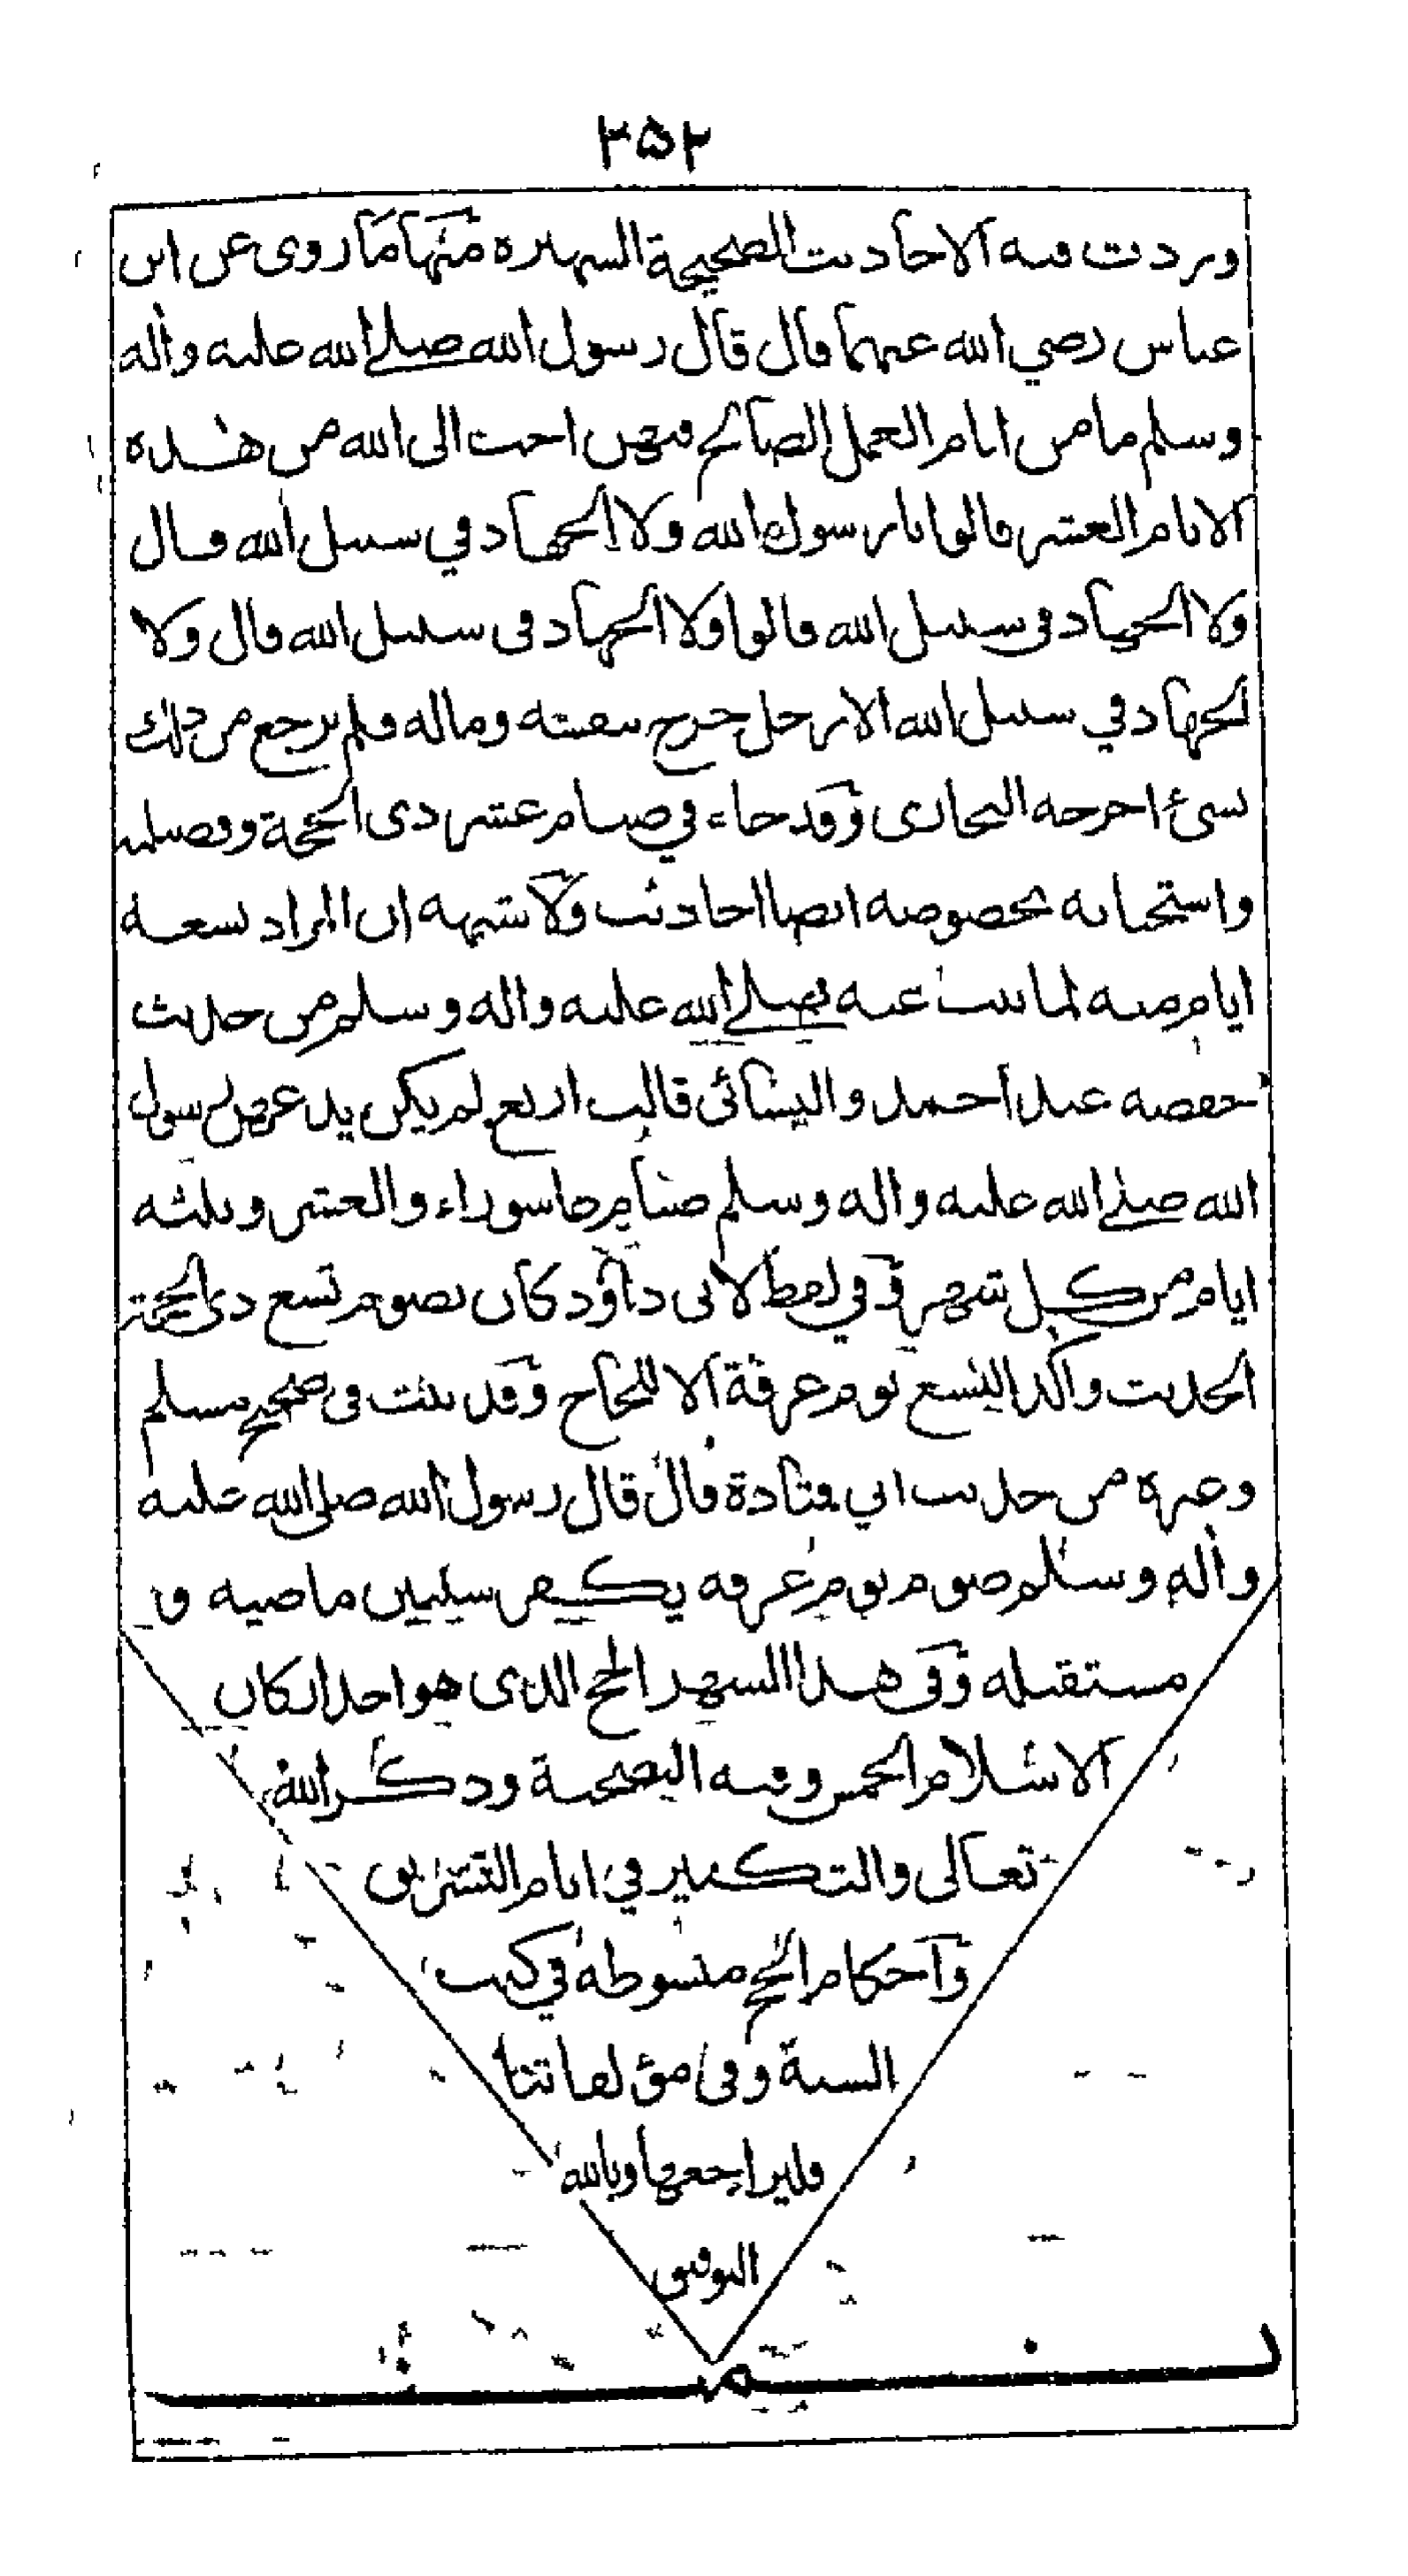 ٢٥٢
وردت فيه الاحاديث الصحيحة الشهيرة منها ما روى عن ابن
عباس رضي الله عنهما قال قال رسول الله صلى الله عليه واله
وسلم ما من ايام العمل الصالح فيهن احب الى الله من هذه
الايام العشر قالوا يا رسول الله ولا الجهاد في سبيل الله قال
ولا الجهاد في سبيل الله قالوا ولا الجهاد في سبيل الله قال ولا
الجهاد في سبيل الله الا رجل خرج بنفسه وماله فلم يرجع من ذلك
بشئ اخرجه البخارى وقد جاء في صيام عشر ذى الحجة وفضله
واستحبابه بخصوصه ايضا احاديث ولا شبهه ان المراد تسعة
ايام منه لما ثبت عنه صلى الله عليه واله وسلم من حديث
حفصه عند احمد والنسائى قالت اربع لم يكن يدعهن رسول
الله صلى الله عليه واله وسلم صيام عاشوراء والعشر وثلثه
ايام من كل شهر وفي لفظ لابى داؤد كان يصوم تسع ذى الحجة
الحديث واكد التسع يوم عرفة الا للحاج وقد ثبت فى صحيح مسلم
وغيره من حديث ابي قتادة قال قال رسول الله صلى الله عليه
واله وسلم صوم يوم عرفه يكفر سنتين ماضيه و
مستقبله وفى هذا الشهر الحج الذى هو احد اركان
الاسلام الخمس وفيه التضحية وذكر الله
تعالى والتكبير في ايام التشريق
واحكام الحج مبسوطه في كتب
السنة وفى مؤلفاتنا
فليراجعها وبالله
التوفيق